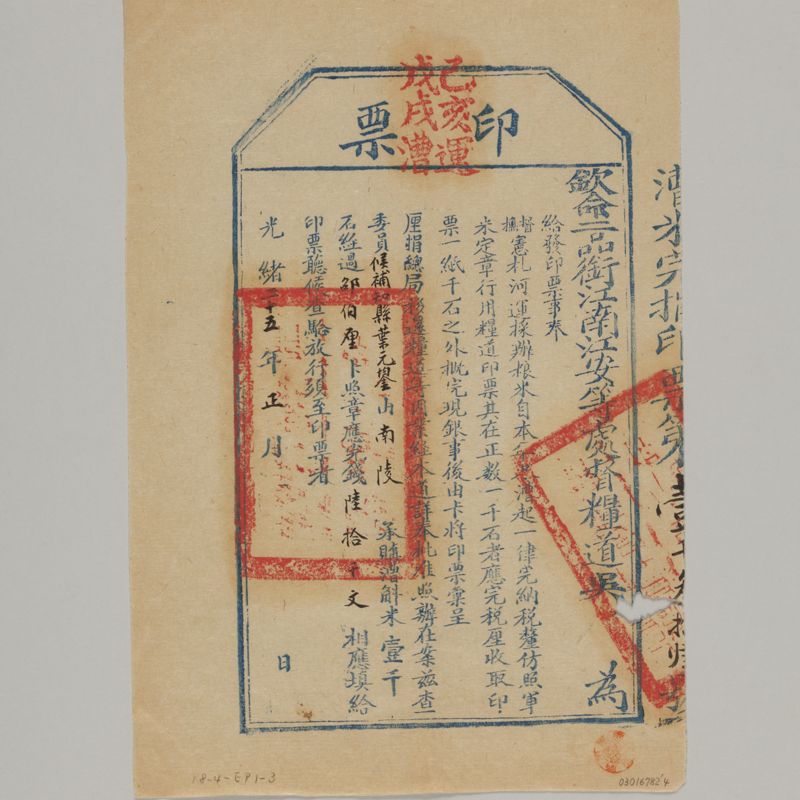 印票
己亥運
戊戌漕
漕米完捐印票第
欽命二品銜江南江安等處督糧道吳 為
給發印票事奉
督撫憲札河運採辦粮米自本 起一律完納稅釐仿照軍
米定章行用糧道印票其在正數一千石者應完稅厘收取印
票一紙千石之外概完現銀事後由卡將印票彙呈
厘捐總局 糧道 奉批准照辦在案茲查
委員候補知縣葉元鋆由南陵 承購漕斛米壹千
石經過邵伯厘卡照章應完錢陸拾千文 相應填給
印票聽候查驗放行須至印票者
光緒二十五年正月 日
18-4-EP1-3
030167824